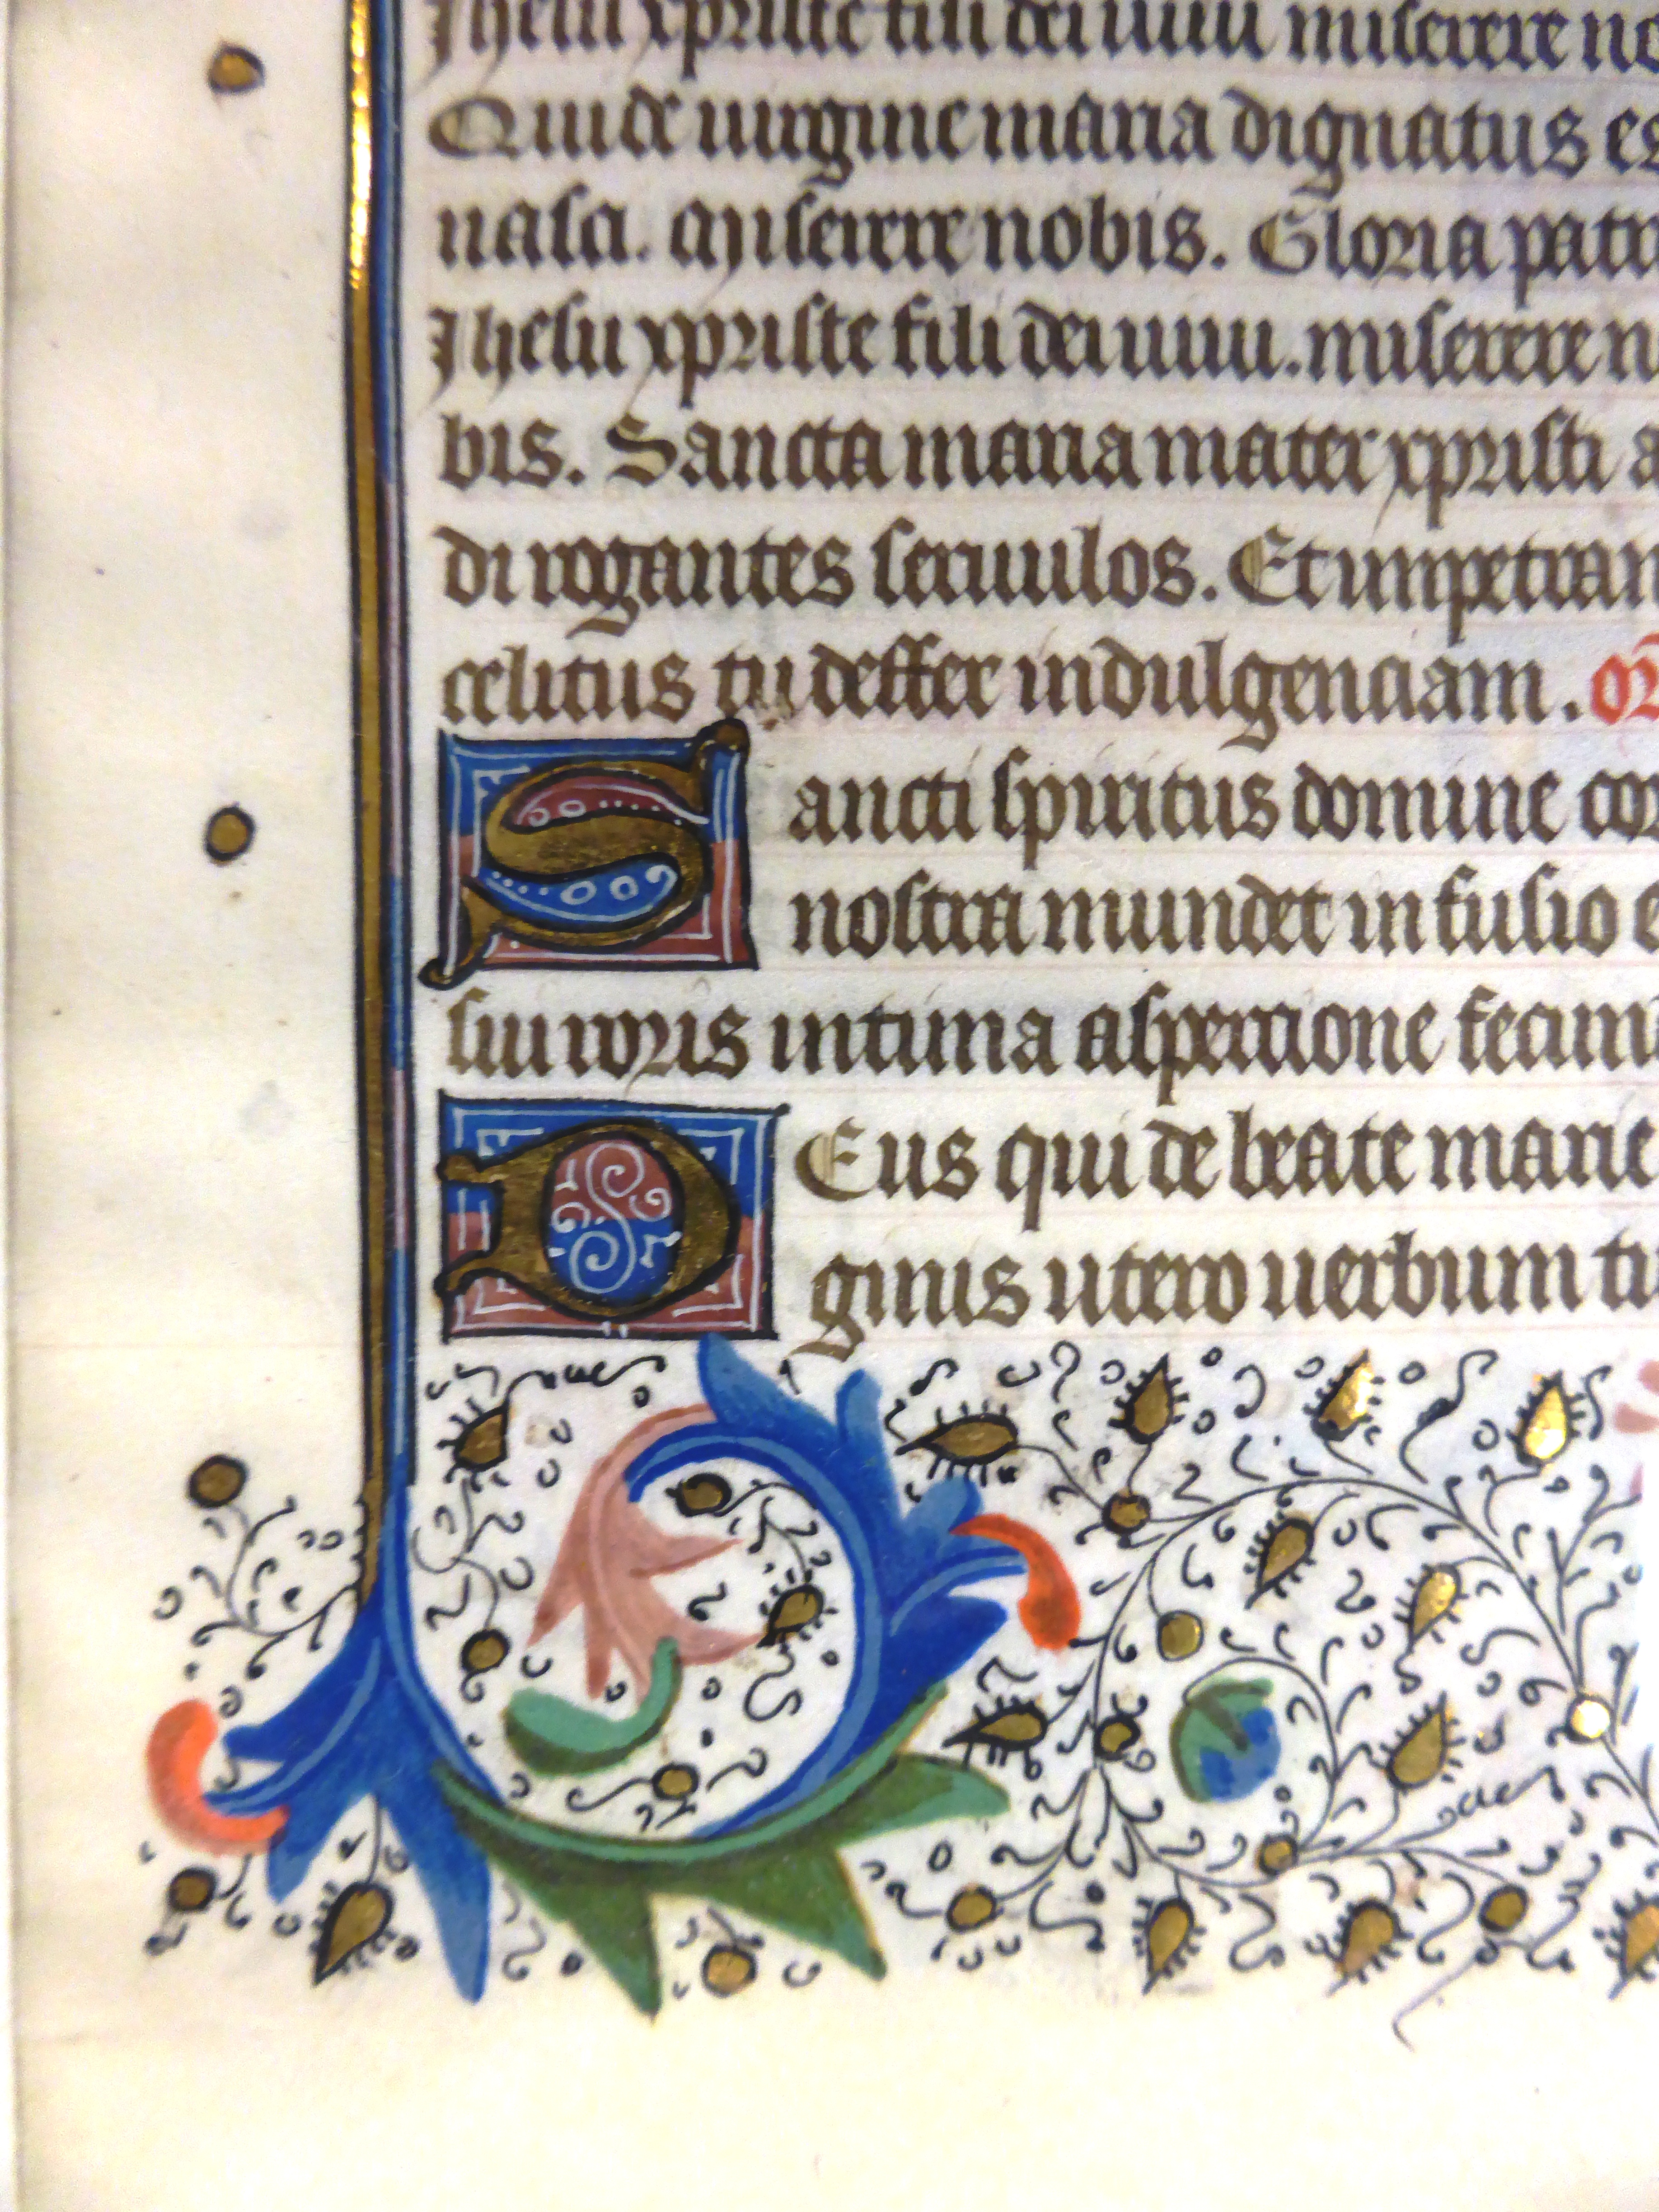 Jhesu xpriste fili dei uiui miserere no
Qui de uirgine maria dignatus es
nasci. Miserere nobis. Gloria patri
Jhesu xpriste fili dei uiui. miserere n
bis. Sancta maria mater xpristi a
di rogantes seruulos. Et impetran
celitus tu deffer indulgenciam. or
Sancti spiritus domine cor
nostra mundet infusio e
sui roris intima aspercione fecun
DEus qui de beate marie
ginis utero uerbum tu